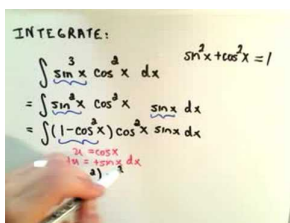 INTEGRATE:
sin²x + cos²x = 1
∫ sin³x cos²x dx
= ∫ sin²x cos²x sinx dx
= ∫ (1-cos²x) cos²x sinx dx
u = cosx
du = + sinx dx
²)